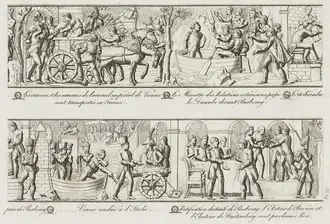 Les canons et les armures de l'arsenal impérial de Vienne
sont transportés en France.
Le Ministre des Relations extérieures passe
le Danube devant Presbourg.
paix de Presbourg
Venise rendue à l'Italie
de Presbourg, l'Electeur de Bavière et
l'Electeur de Wurtemberg sont proclamés Rois.